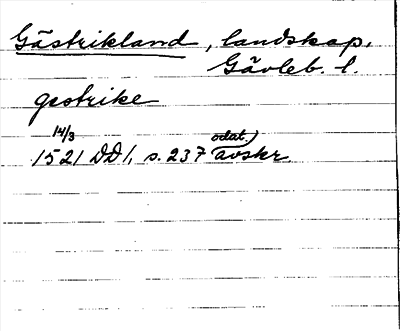 Gästrikland, landskap.
Gävleb. l.
gestrike
14/3 odat.)
1521 DD1, s. 237 avskr.